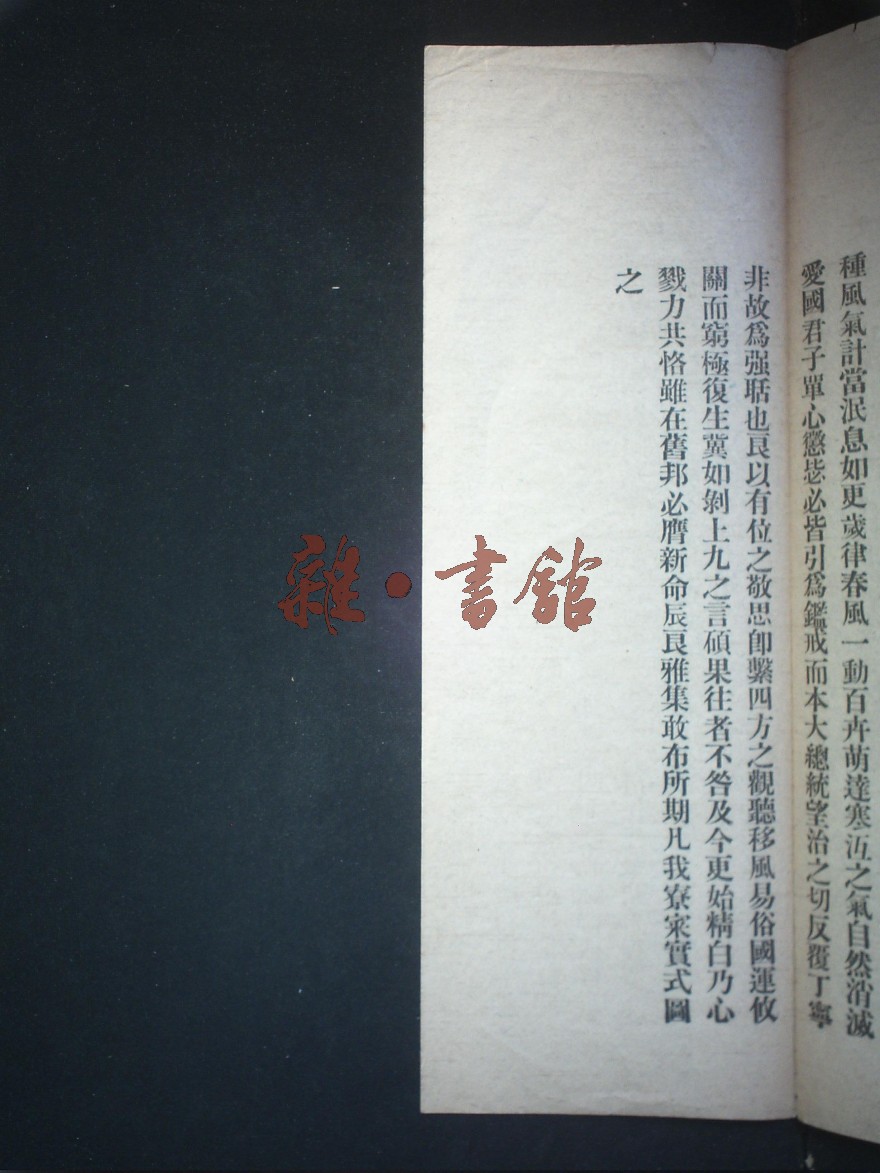 種風氣計當泯息如更歲律春風一動百卉萌達寒沍之氣自然消滅
愛國君子單心懲毖必皆引爲鑑戒而本大總統望治之切反覆丁寧
非故爲强聒也良以有位之敬思卽繫四方之觀聽移風易俗國運攸
關而窮極復生冀如剝上九之言碩果往者不咎及今更始精白乃心
戮力共恪雖在舊邦必膺新命辰良雅集敢布所期凡我寮寀實式圖
之
雜·書館